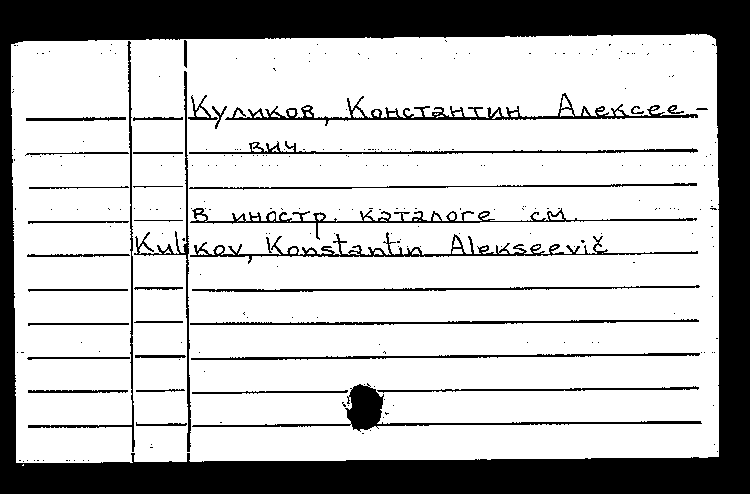 Куликов, Константин Алексее-
вич
в иностр. каталоге см.
Kulikov, Konstantin Alekseevič